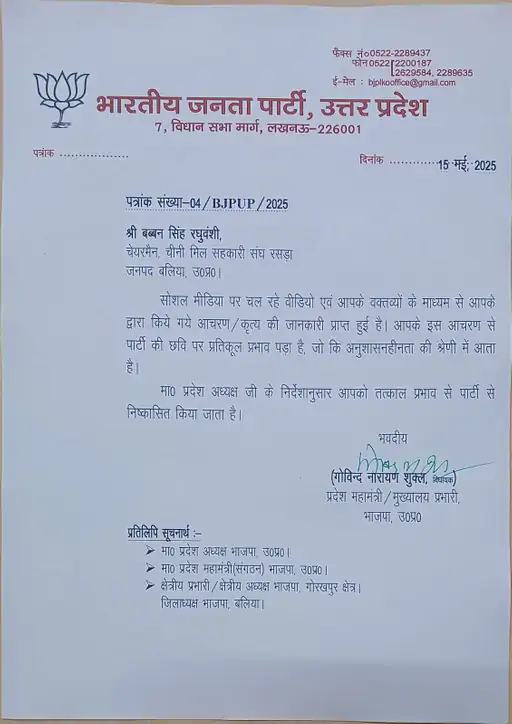 फैक्स नं०0522-2289437
फोन0522 2200187
2629584, 2289635
ई-मेल : bjplkooffice@gmail.com
भारतीय जनता पार्टी, उत्तर प्रदेश
7, विधान सभा मार्ग, लखनऊ-226001
पत्रांक ..................
दिनांक .................. 15 मई, 2025
पत्रांक संख्या-04/BJPUP/2025
श्री बब्बन सिंह रघुवंशी,
चेयरमैन, चीनी मिल सहकारी संघ रसड़ा
जनपद बलिया, उ0प्र0।
सोशल मीडिया पर चल रहे वीडियो एवं आपके वक्तव्यों के माध्यम से आपके
द्वारा किये गये आचरण/कृत्य की जानकारी प्राप्त हुई है। आपके इस आचरण से
पार्टी की छवि पर प्रतिकूल प्रभाव पड़ा है, जो कि अनुशासनहीनता की श्रेणी में आता
है।
मा0 प्रदेश अध्यक्ष जी के निर्देशानुसार आपको तत्काल प्रभाव से पार्टी से
निष्कासित किया जाता है।
भवदीय
(गोविन्द नारायण शुक्ल, विधायक)
प्रदेश महामंत्री/मुख्यालय प्रभारी,
भाजपा, उ0प्र0
प्रतिलिपि सूचनार्थ :-
➢ मा0 प्रदेश अध्यक्ष भाजपा, उ0प्र0।
➢ मा0 प्रदेश महामंत्री(संगठन) भाजपा, उ0प्र0।
➢ क्षेत्रीय प्रभारी/क्षेत्रीय अध्यक्ष भाजपा, गोरखपुर क्षेत्र।
जिलाध्यक्ष भाजपा, बलिया।